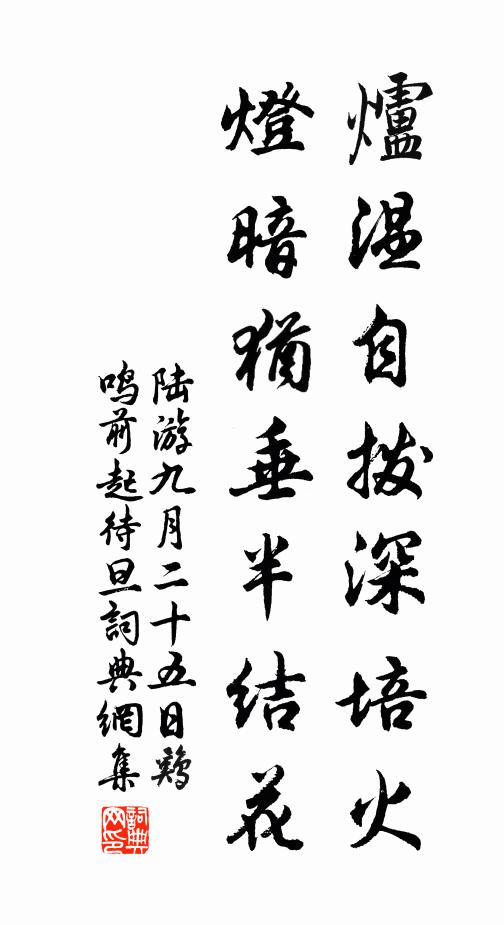 爐温自撥深培火
燈暗猶垂半結花
陆游九月二十五日鷄
鸣前起待旦詞典網集
詞典
网印